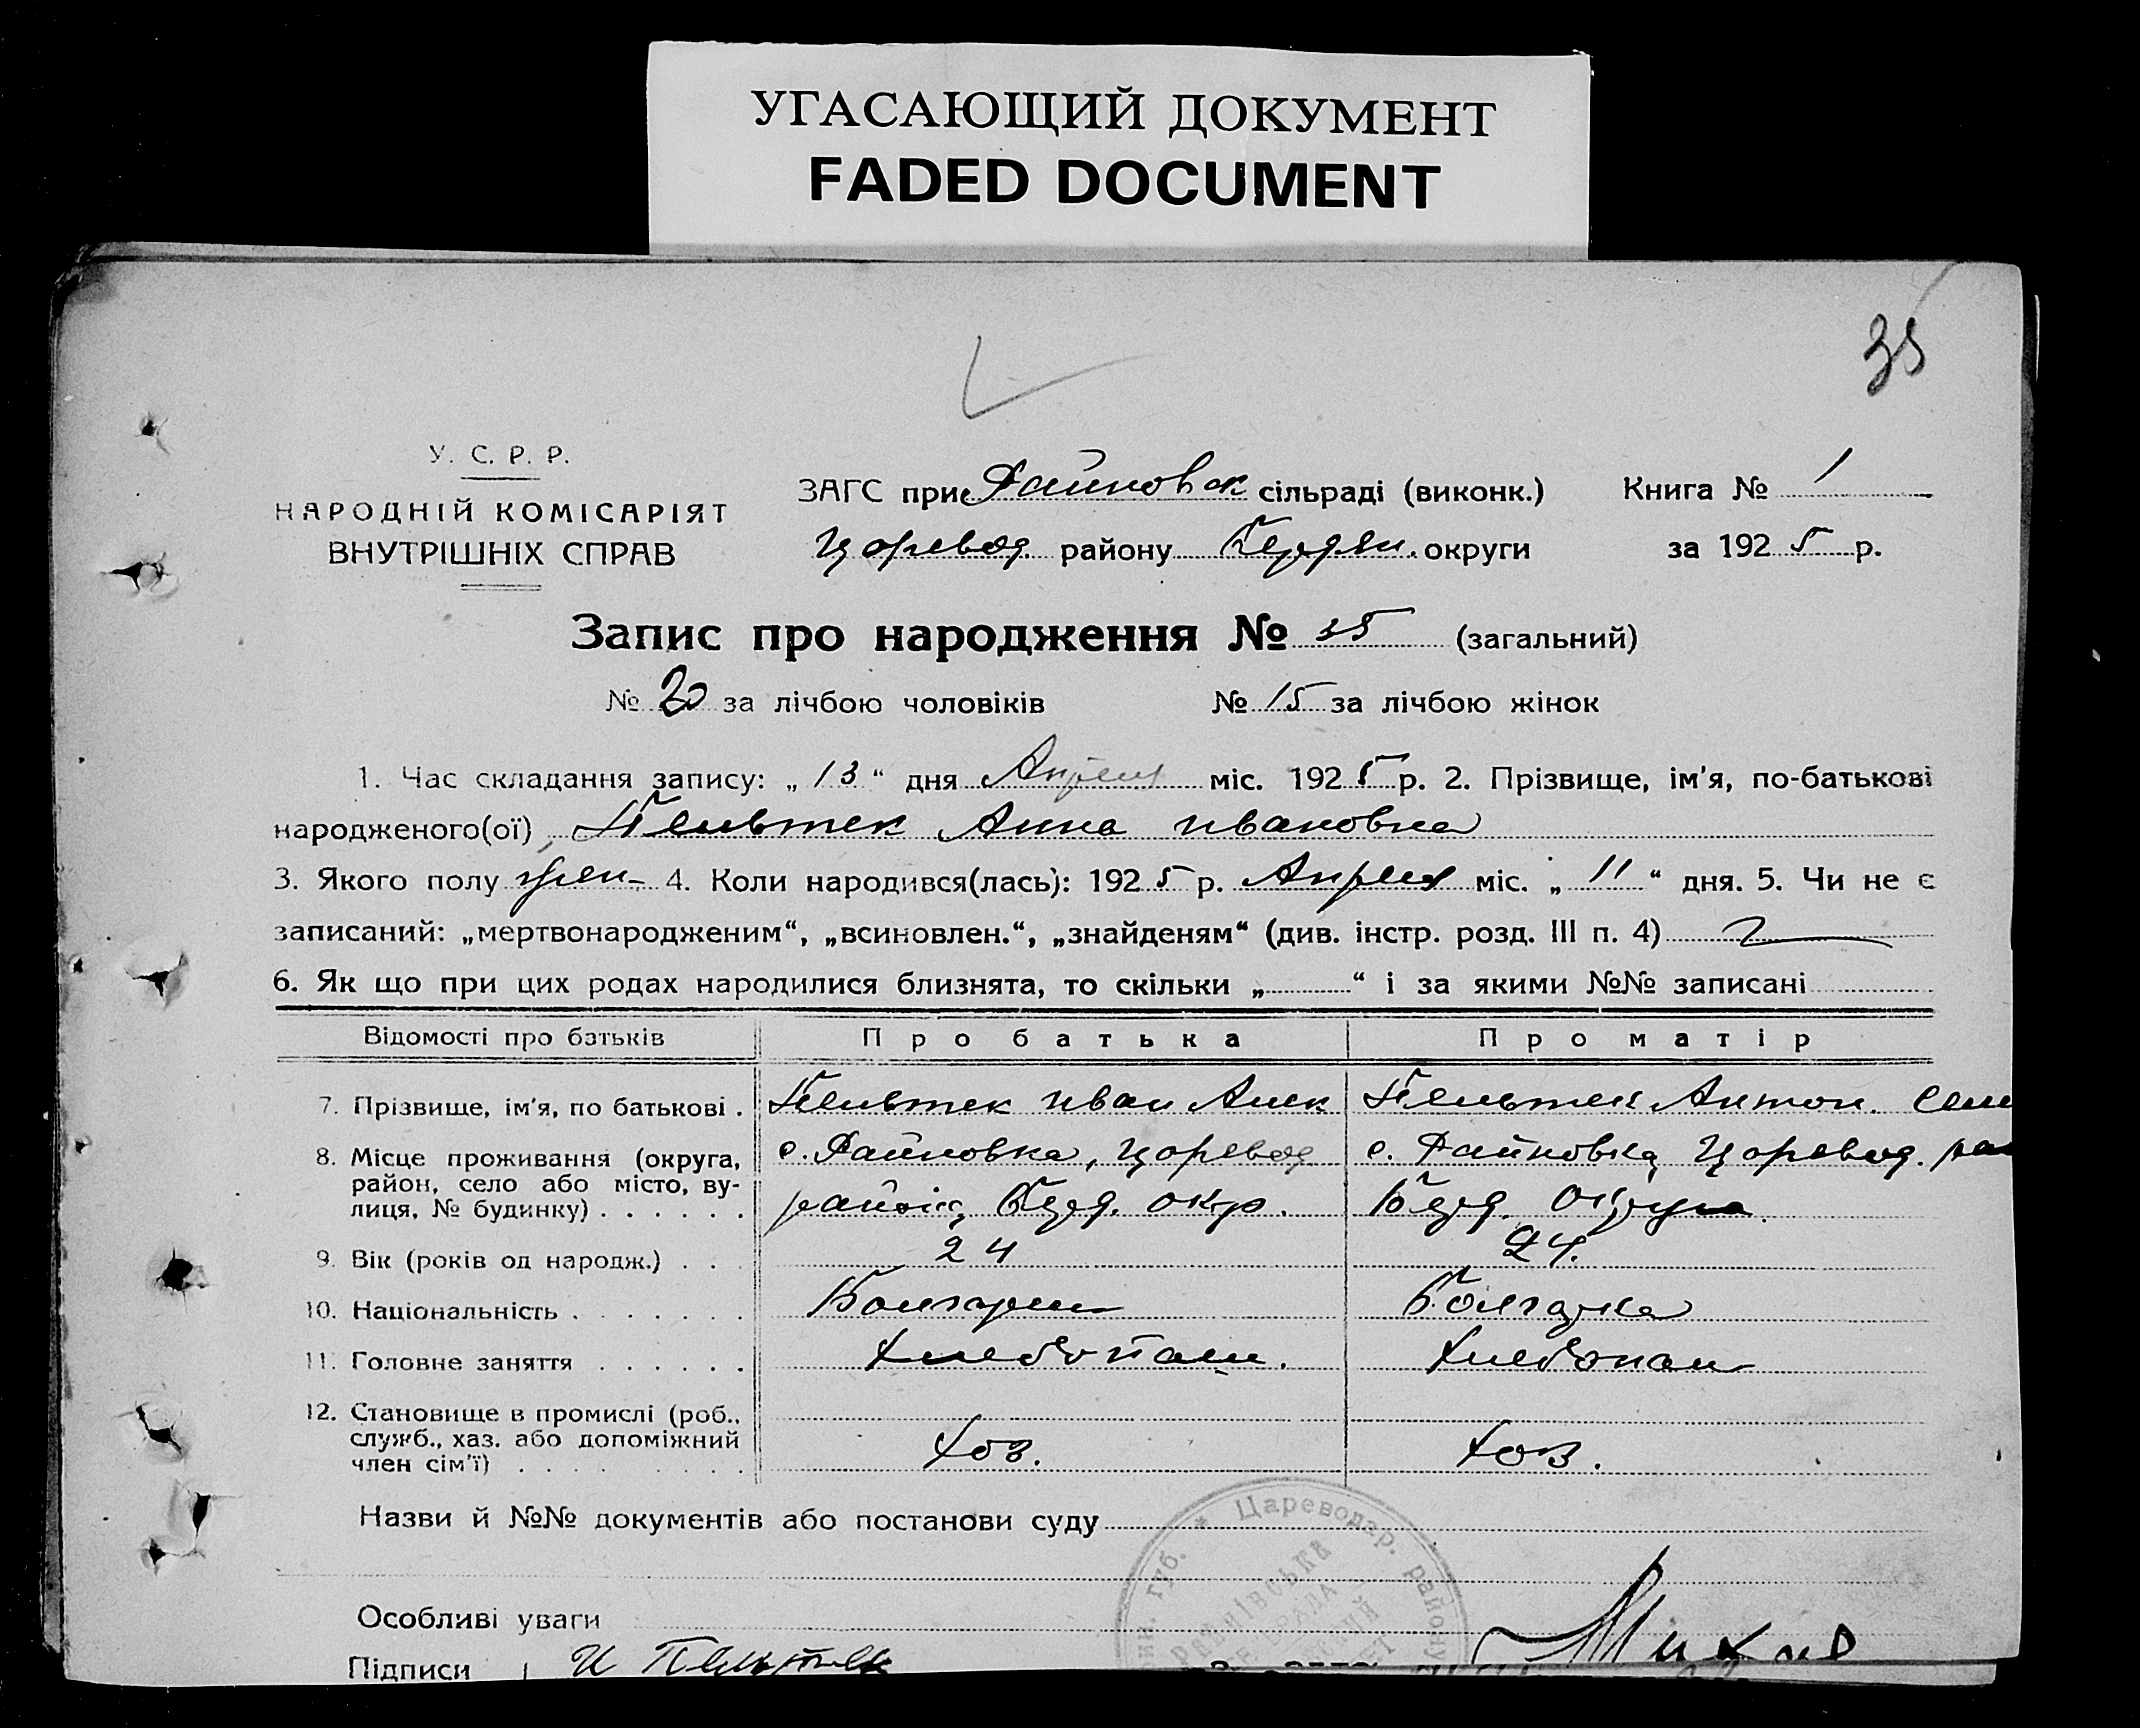 УГАСАЮЩИЙ ДОКУМЕНТ
FADED DOCUMENT
35
У. С. Р. Р.
НАРОДНІЙ КОМІСАРІЯТ
ВНУТРІШНІХ СПРАВ
ЗАГС при Райновск сільраді (виконк.) Книга № 1
Царевод. району Бердян. округи за 1925 р.
Запис про народження № 35 (загальний)
№ 20 за лічбою чоловіків № 15 за лічбою жінок
1. Час складання запису: „13“ дня Апреля міс. 1925 р. 2. Прізвище, ім'я, по-батькові
народженого(ої) Пельтек Анна Ивановна
3. Якого полу жен- 4. Коли народився(лась): 1925 р. Апреля міс. „11“ дня. 5. Чи не є
записаний: „мертвонародженим“, „всиновлен.“, „знайденям“ (див. інстр. розд. III п. 4)
6. Як що при цих родах народилися близнята, то скільки „ “ і за якими №№ записані
Відомості про батьків Про батька Про матір
7. Прізвище, ім'я, по батькові . Пельтек Иван Алек Пельтек Антон. Сем
8. Місце проживання (округа, район, село або місто, вулиця, № будинку) . . . . . . с. Райновка, Царевод с. Райновка Царевод. рай
района Берд. окр. Берд. Округа
9. Вік (років од народж.) . . . 24 24.
10. Національність . . . . . . . Болгарин Болгарка
11. Головне заняття . . . . . . Хлебопаш. Хлебопаш
12. Становище в промислі (роб., служб., хаз. або допоміжний член сім'ї) . . . . . . . Хоз. Хоз.
Назви й №№ документів або постанови суду
Особливі уваги
Підписи И Пельтек
* Цареводар. району губ.